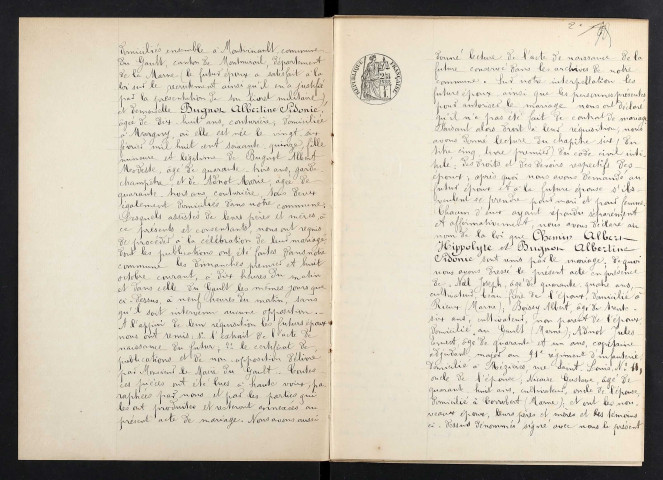 domiciliés ensemble à Montvinault, commune
du Gault, canton de Montmirail, département
de la Marne, le futur époux a satisfait à la
loi sur le recrutement ainsi qu'il en a justifié
par la présentation de son livret militaire,
et demoiselle Bugnot Albertine Sidonie,
âgée de dix huit ans, couturière, domiciliée
à Margny, où elle est née le vingt six
février mil huit cent soixante quinze, fille
mineure et légitime de Bugnot Albert
Modeste, âgé de quarante trois ans, garde
champêtre, et de Adnot Marie, âgée de
quarante trois ans, couturière, tous deux
également domiciliés dans notre commune.
Lesquels assistés de leurs père et mères à
ce présents et consentants nous ont requis
de procéder à la célébration de leur mariage
dont les publications ont été faites dans notre
commune les dimanches premier et huit
octobre courant, à dix heures du matin
et dans celle du Gault les mêmes jours que
ci-dessus, à neuf heures du matin, sans
qu'il soit intervenu aucune opposition.
A l'appui de leur réquisition les futurs époux
nous ont remis: 1° l'extrait de l'acte de
naissance du futur; 2° le certificat de
publications et de non opposition délivré
par Monsieur le Maire du Gault. Toutes
ces pièces ont été lues à haute voix, pa-
raphées par nous et par les parties qui
les ont produites et resteront annexées au
présent acte de mariage. Nous avons aussi
2
RÉPUBLIQUE FRANÇAISE
donné lecture de l'acte de naissance de la
future conservé dans les archives de notre
commune. Sur notre interpellation les
futurs époux ainsi que les personnes présentes
pour autoriser le mariage nous ont déclaré
qu'il n'a pas été fait de contrat de mariage.
Faisant alors droit à leur réquisition nous
avons donné lecture du chapitre six (du
titre cinq livre premier) du code civil inti-
tulé: des droits et des devoirs respectifs des
époux; après quoi nous avons demandé au
futur époux et à la future épouse s'ils
veulent se prendre pour mari et pour femme.
Chacun d'eux ayant répondu séparément
et affirmativement, nous avons déclaré au
nom de la loi que Chemin Albert
Hippolyte et Bugnot Albertine
Sidonie sont unis par le mariage. De quoi
nous avons dressé le présent acte en présence
de Joseph, âgé de quarante quatre ans,
cultivateur, beau frère de l'époux, domicilié à
Rieux (Marne), Albert, âgé de trente
six ans, cultivateur, non parent de l'époux
domicilié au Gault (Marne), Adnot Jules
Ernest âgé de quarante et un ans, capitaine
adjudant major au 91e régiment d'infanterie
domicilié à Mézières, rue Saint Louis, N° 11,
oncle de l'épouse, Nicaise Gustave, âgé de
quarante huit ans, cultivateur, oncle de l'épouse,
domicilié à Corrobert (Marne); et ont les nou-
veaux époux, leurs père et mères et les témoins
ci-dessus dénommés signé avec nous le présent